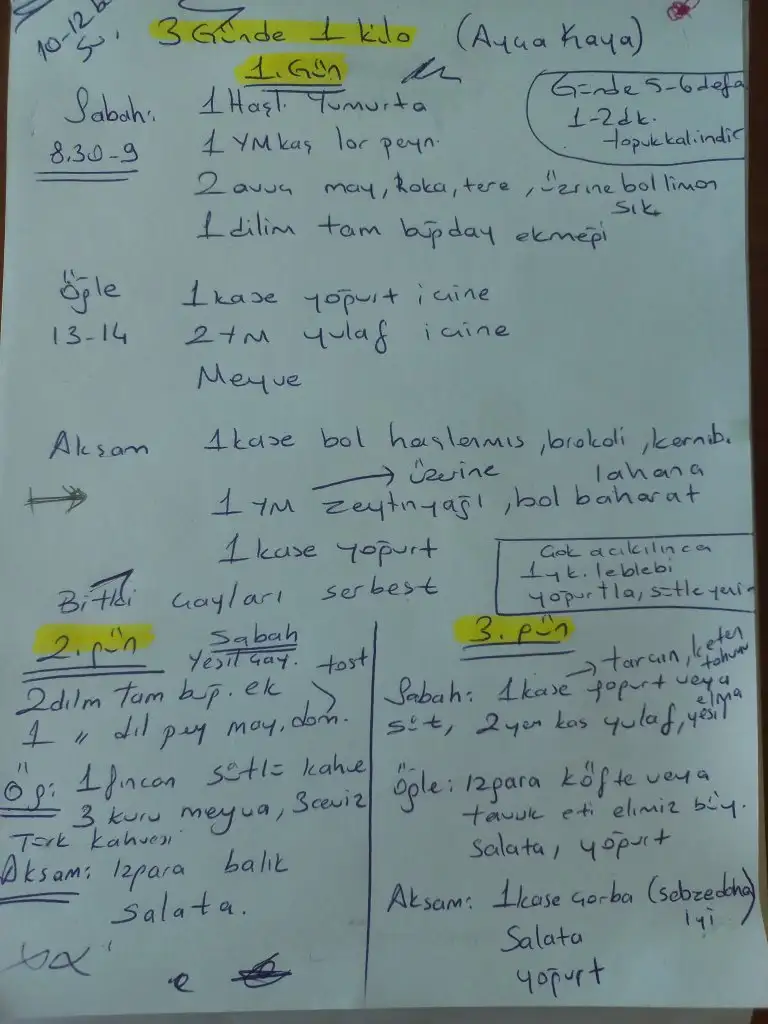 10-12 b
Su.
3 Günde 1 kilo (Ayça Kaya)
1. Gün
Günde 5-6 defa
1-2 dk.
topuk kal. indir
Sabah: 1 Haşl. Yumurta
8.30-9 1 YM kaş lor peyn.
2 avuç may, Roka, tere, üzerine bol limon
sık.
1 dilim tam buğday ekmeği
Öğle 1 kase yoğurt içine
13-14 2 YM yulaf içine
Meyve
Akşam 1 kase bol haşlanmış, brokoli, karnıb.
→ üzerine lahana
1 YM zeytinyağı, bol baharat
1 kase yoğurt
Çok acıkılınca
1 yk. leblebi
yoğurtla, sütle yenir
Bitki çayları serbest
2. gün
Sabah
Yeşil çay. tost
2 dilm tam buğ. ek
1 " dil pey may, dom.
Öğ: 1 fincan sütlü kahve
3 kuru meyva, 3 ceviz
Türk kahvesi
Akşam: Izgara balık
Salata.
3. gün
→ tarçın, keten
tohumu
Sabah: 1 kase yoğurt veya
elma
süt, 2 yem kaş yulaf, yeşil
Öğle: Izgara köfte veya
tavuk eti elimiz büy.
Salata, yoğurt
Akşam: 1 kase çorba (sebze daha
iyi)
Salata
yoğurt